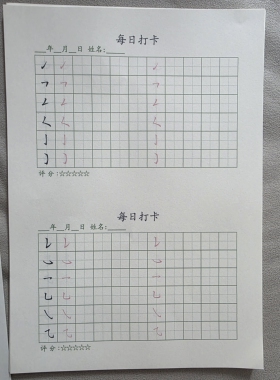 每日打卡
___年__月__日 姓名:_____
评分:☆☆☆☆☆
每日打卡
___年__月__日 姓名:_____
评分:☆☆☆☆☆